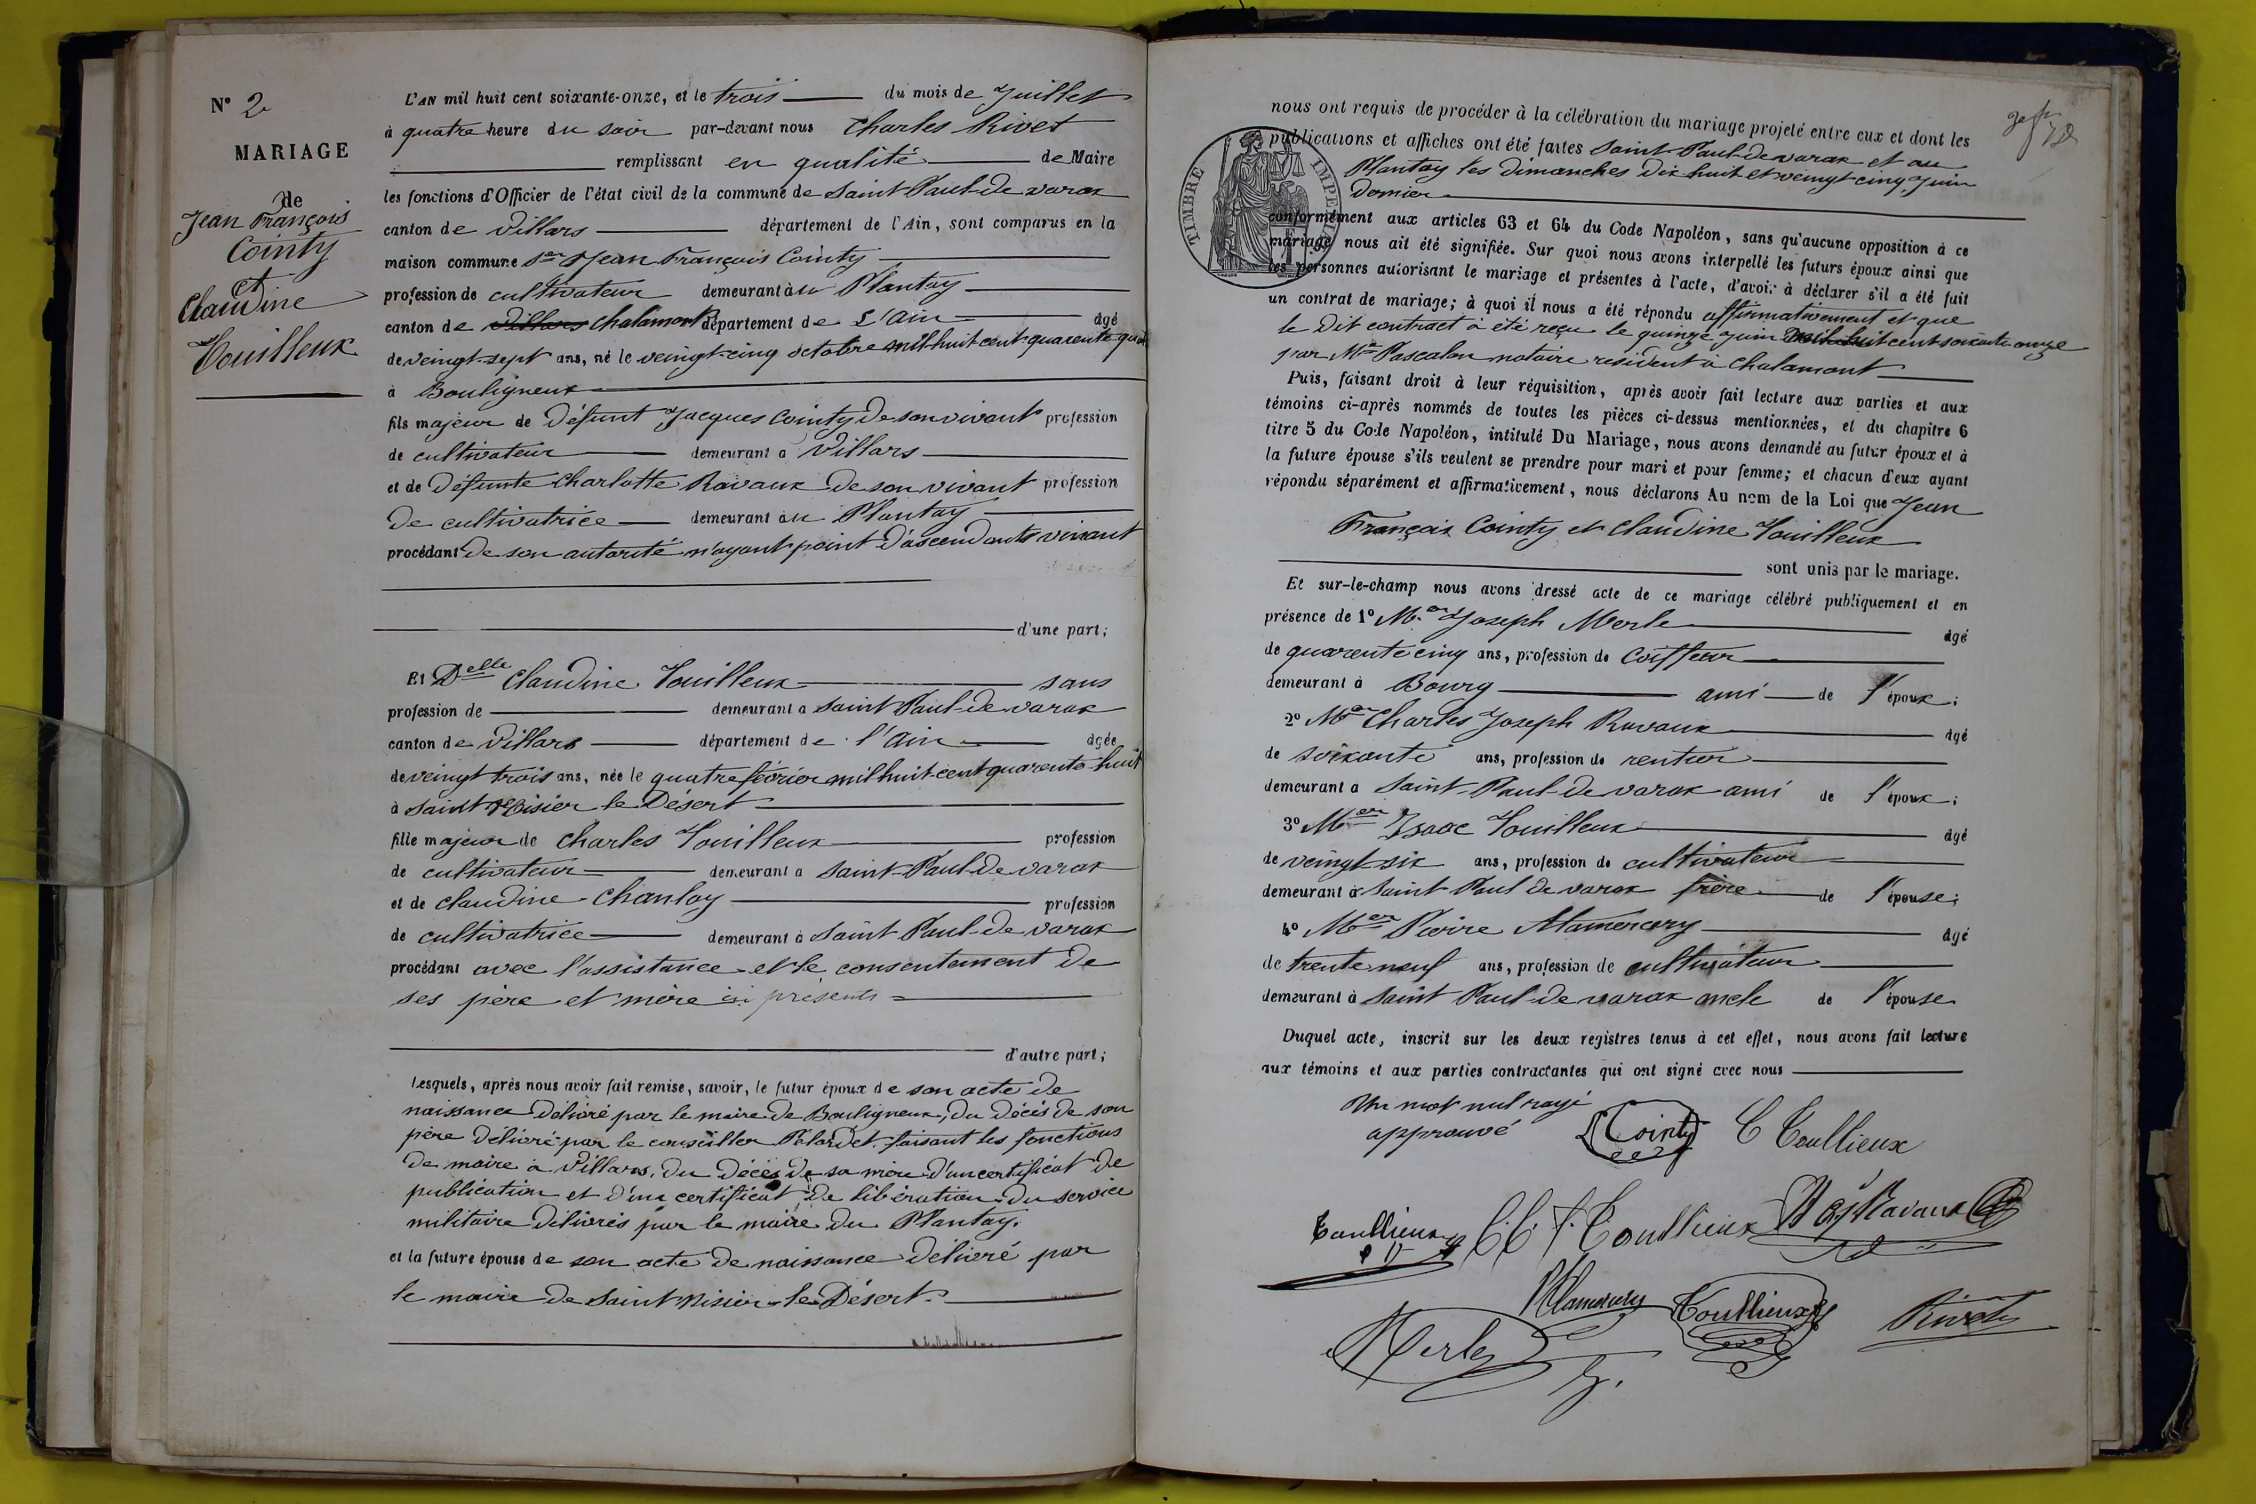 N° 2
MARIAGE
de
Jean François
Cointy
et
Claudine
Touilleux
L'AN mil huit cent soixante-onze, et le trois du mois de Juillet
à quatre heure du soir par-devant nous Charles Rivet
remplissant en qualité de Maire
les fonctions d'Officier de l'état civil de la commune de Saint-Paul-de varax
canton de Villars département de l'Ain, sont comparus en la
maison commune Sr Jean François Cointy
profession de cultivateur demeurant à u Plantay
canton de Villars chalamont département de L'Ain âgé
de veingt-sept ans, né le veingt-cinq octobre mil huit cent quarente
à Bouligneux
fils majeur de Défunt Jacques Cointy de son vivant profession
de cultivateur demeurant à Villars
et de Défunte Charlotte Ravaux de son vivant profession
de cultivatrice demeurant au Plantay
procédant de son autorité n'ayant point d'ascendants vivant
d'une part;
Et Delle Claudine Touilleux sans
profession de demeurant à Saint Paul-de-varax
canton de Villars département de l'Ain âgée
de veingt trois ans, née le quatre février mil huit-cent quarente-huit
à Saint Nisier le Désert
fille majeur de Charles Touilleux profession
de cultivateur demeurant à Saint-Paul-de varax
et de Claudine Chanlay profession
de cultivatrice demeurant à Saint Paul-de varax
procédant avec l'assistance et le consentement de
ses père et mère ici présents
d'autre part;
Lesquels, après nous avoir fait remise, savoir, le futur époux de son acte de
naissance délivré par le maire de Bouligneux, du décès de son
père délivré par le conseiller Palardet faisant les fonctions
de maire à Villars, du décès de sa mère d'un certificat de
publication et d'un certificat de libération du service
militaire délivrés par le maire du Plantay.
et la future épouse de son acte de naissance délivré par
le maire de Saint Nisier-le-Désert.
nous ont requis de procéder à la célébration du mariage projeté entre eux et dont les
publications et affiches ont été faites Saint-Paul-de varax et au
Plantay les dimanches dix huit et veingt cinq Juin
dernier
TIMBRE IMPERIAL
conformément aux articles 63 et 64 du Code Napoléon, sans qu'aucune opposition à ce
mariage nous ait été signifiée. Sur quoi nous avons interpellé les futurs époux ainsi que
les personnes autorisant le mariage et présentes à l'acte, d'avoir à déclarer s'il a été fait
un contrat de mariage; à quoi il nous a été répondu affirmativement et que
le dit contract à été reçu le quinze Juin mil huit cent soixante onze
par Me Pascalon notaire resident à Chalamont
Puis, faisant droit à leur réquisition, après avoir fait lecture aux parties et aux
témoins ci-après nommés de toutes les pièces ci-dessus mentionnées, et du chapitre 6
titre 5 du Code Napoléon, intitulé Du Mariage, nous avons demandé au futur époux et à
la future épouse s'ils veulent se prendre pour mari et pour femme; et chacun d'eux ayant
répondu séparément et affirmativement, nous déclarons Au nom de la Loi que Jean
François Cointy et Claudine Touilleux
sont unis par le mariage.
Et sur-le-champ nous avons dressé acte de ce mariage célébré publiquement et en
présence de 1° Mer Joseph Merle âgé
de quarente cinq ans, profession de Coiffeur
demeurant à Bourg ami de l'époux;
2° Mer Charles Joseph Ravaux âgé
de soixante ans, profession de rentier
demeurant à Saint-Paul-de varax ami de l'époux;
3° Mer Isaac Touilleux âgé
de veingt-six ans, profession de cultivateur
demeurant à Saint Paul de varax frère de l'épouse;
4° Mer Pierre Mamercery âgé
de trente neuf ans, profession de cultivateur
demeurant à Saint Paul-de varax oncle de l'épouse
Duquel acte, inscrit sur les deux registres tenus à cet effet, nous avons fait lecture
aux témoins et aux parties contractantes qui ont signé avec nous
Un mot nul rayé
approuvé Cointy C Toullieux
Toullieux C. C. T. Toullieux Ravaux
Toullieux
Merle Rivet